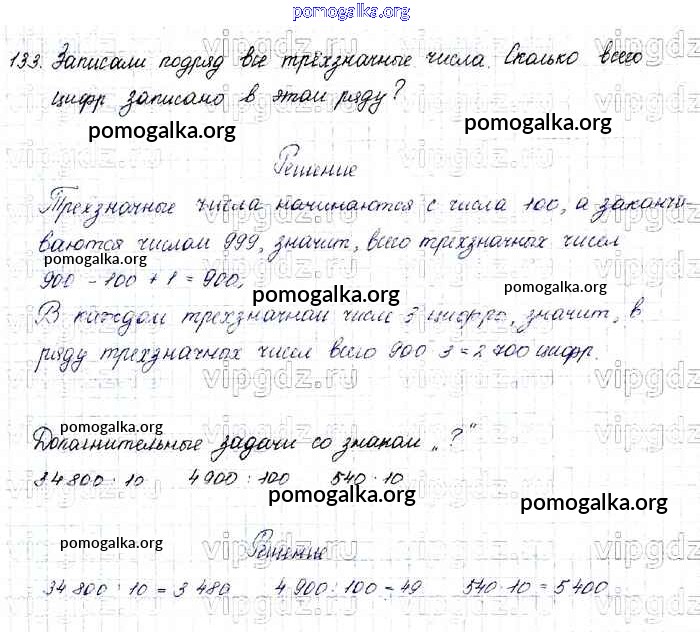 pomogalka.org
133. Записали подряд все трёхзначные числа. Сколько всего
цифр записано в этом ряду?
pomogalka.org
pomogalka.org
Решение
Трехзначные числа начинаются с числа 100, а заканчи-
ваются числом 999, значит, всего трехзначных чисел
pomogalka.org
900 - 100 + 1 = 900;
pomogalka.org
pomogalka.org
В каждом трехзначном числе 3 цифры, значит, в
ряду трехзначных чисел всего 900 · 3 = 2 700 цифр.
pomogalka.org
Дополнительные задачи со знаком „?“
34 800 : 10 4 900 : 100 540 · 10
pomogalka.org
pomogalka.org
pomogalka.org
Решение
34 800 : 10 = 3 480 4 900 : 100 = 49 540 · 10 = 5 400
vipgdz.ru